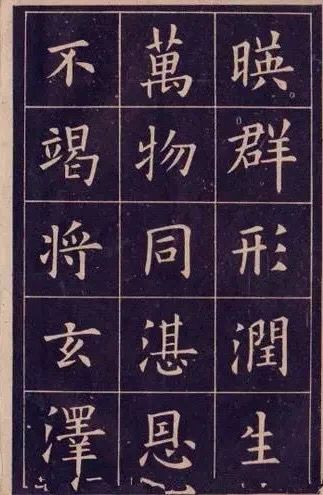 暎群形潤生
萬物同湛恩
不竭将玄澤